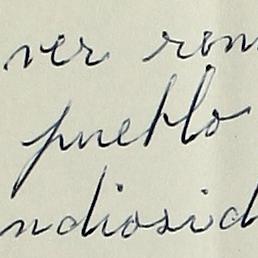 ver ren
pueblo
ndiosid